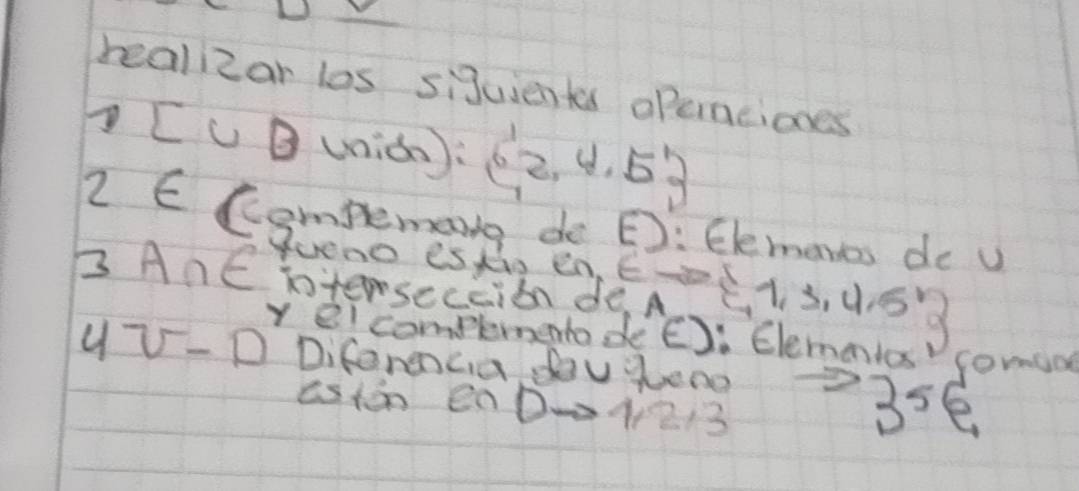 realizar los siguientes operaciones
1 C ∪ B unión): {2, 4, 5}
2 E (complemento de E): Elementos de U
que no están en E → {1, 3, 4, 5}
3 A ∩ E intersección de A
y el complemento de E): Elementos
4 U - D Diferencia de U que no → 3 5
están en D → 1, 2, 3